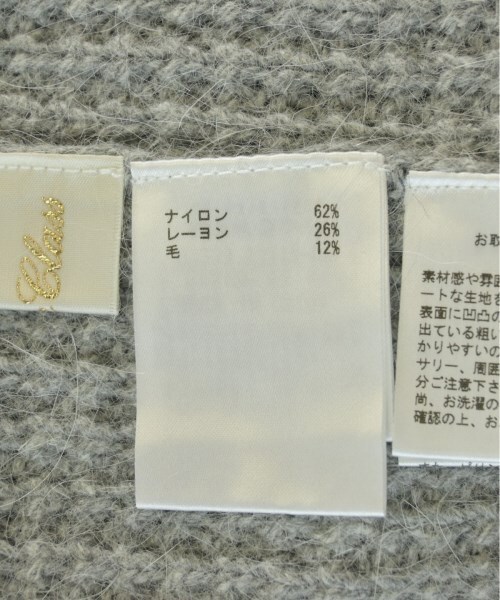 Class
ナイロン 62%
レーヨン 26%
毛 12%
お取
素材感や雰囲
ートな生地を
表面に凹凸の
出ている粗い
かりやすいの
サリー、周囲
分ご注意下さ
尚、お洗濯の
確認の上、お